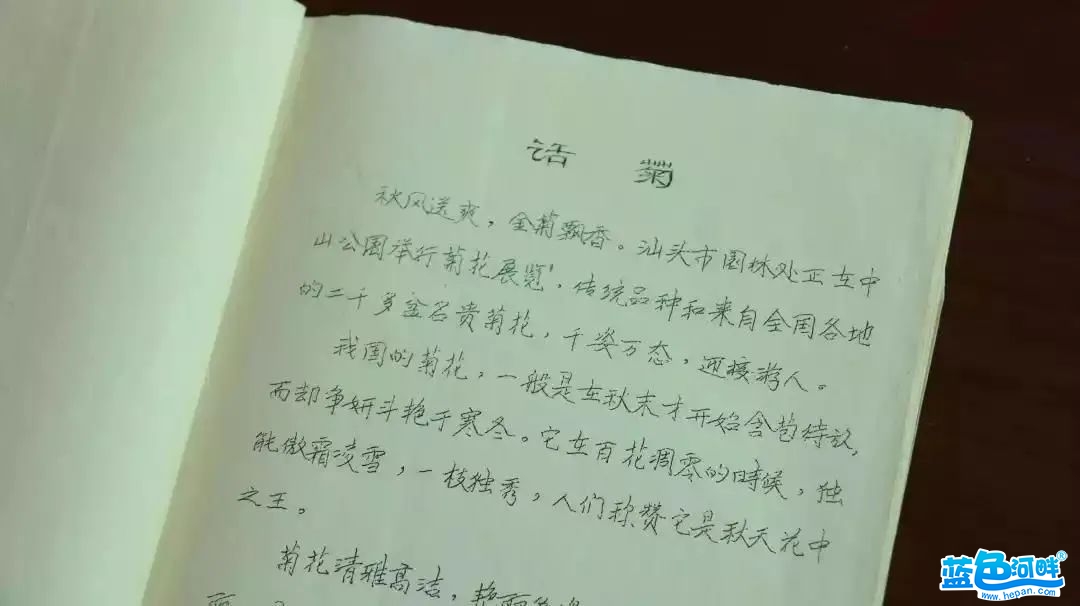 话 菊
秋风送爽，金菊飘香。汕头市园林处正在中
山公园举行菊花展览，传统品种和来自全国各地
的二千多盆名贵菊花，千姿万态，迎接游人。
我国的菊花，一般是在秋末才开始含苞待放，
而却争妍斗艳于寒冬。它在百花凋零的時候，独
能傲霜凌雪，一枝独秀，人们称赞它是秋天花中
之王。
菊花清雅高洁，艳而
蓝色河畔®
www.hepan.com